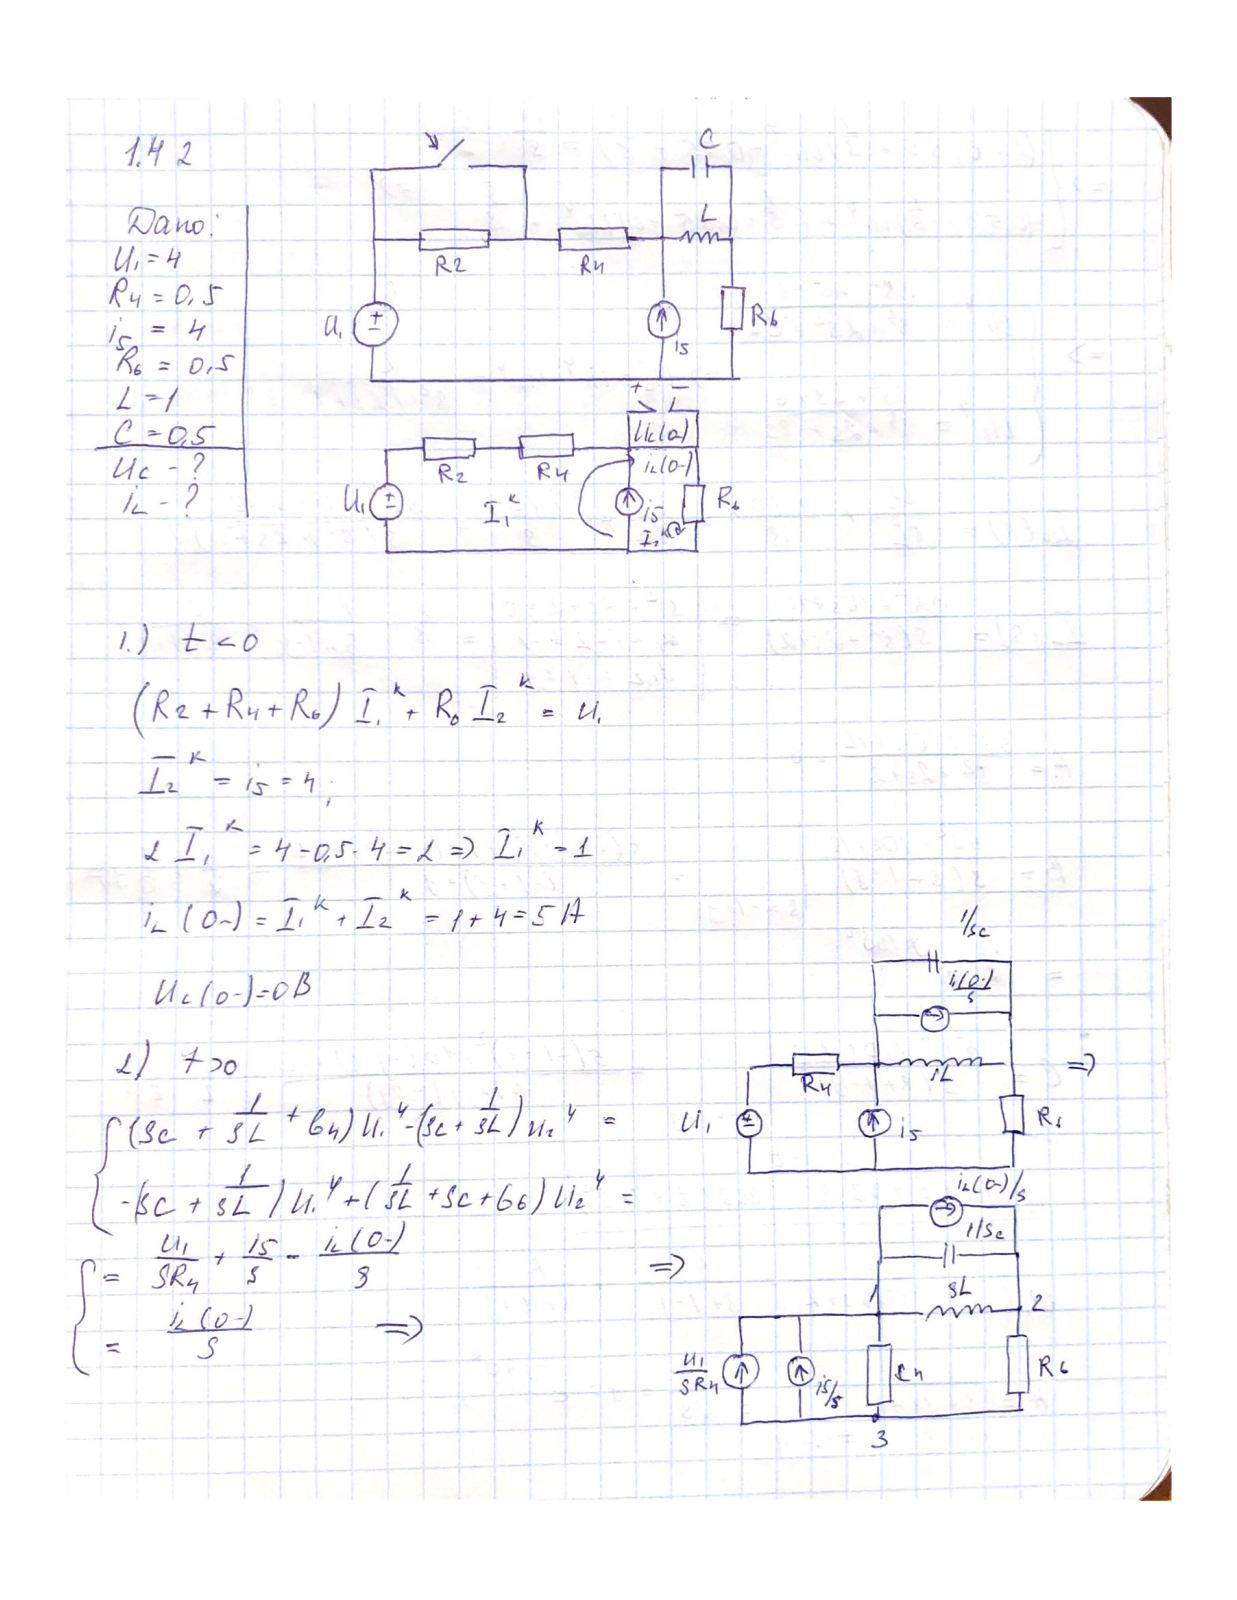 1.4 2
Дано:
U₁ = 4
R₄ = 0,5
i₅ = 4
R₆ = 0,5
L = 1
C = 0,5
Uc - ?
iL - ?
C
L
R2
R4
U₁
i5
R6
+ -
Uc(0-)
iL(0-)
R2
R4
U₁
I₁ᴷ
i5
I₂ᴷ
R6
1.) t < 0
(R2 + R4 + R6) I₁ᴷ + R6 I₂ᴷ = U₁
I₂ᴷ = i5 = 4;
2 I₁ᴷ = 4 - 0,5 · 4 = 2 => I₁ᴷ = 1
iL (0-) = I₁ᴷ + I₂ᴷ = 1 + 4 = 5 A
Uc (0-) = 0 В
2) t > 0
(sC + 1/sL + G4) U₁ʸ - (sC + 1/sL) U₂ʸ =
-(sC + 1/sL) U₁ʸ + (1/sL + sC + G6) U₂ʸ =
= U1/sR4 + i5/s - iL(0-)/s
= iL(0-)/s =>
1/sC
iL(0-)/s
R4
iL
=>
U₁
i5
R6
=>
iL(0-)/s
1/sC
1
sL
2
U1/sR4
i5/s
R4
R6
3